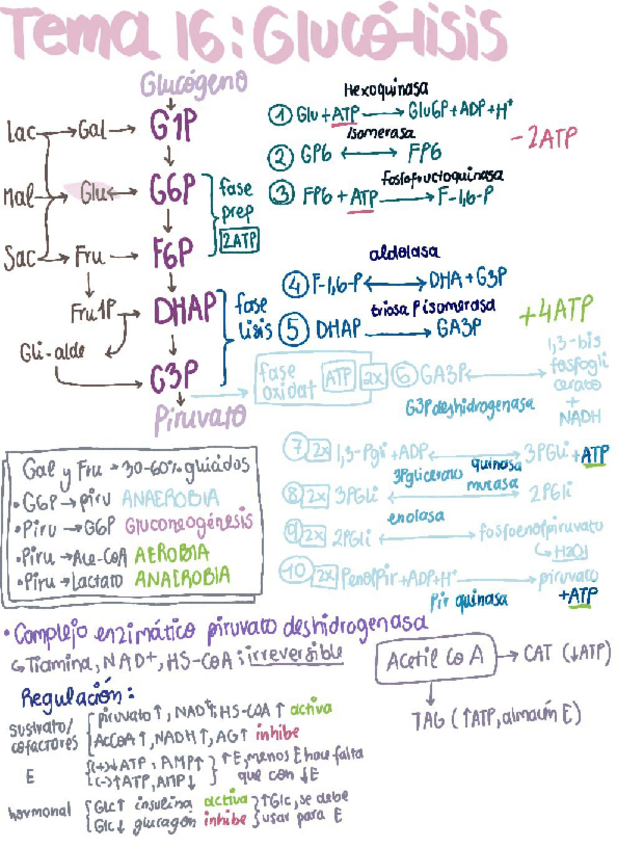 Tema 16: Glucólisis
Glucógeno
Lac Gal G1P
Mal Glu G6P
Sac Fru F6P
fase prep
2ATP
Fru1P DHAP
Gli-alde
G3P
fase lisis
Piruvato
Hexoquinasa
① Glu + ATP → Glu6P + ADP + H⁺
-2ATP
Isomerasa
② GP6 ↔ FP6
fosfofructoquinasa
③ FP6 + ATP → F-1,6-P
aldolasa
④ F-1,6-P ↔ DHA + G3P
triosa P isomerasa
⑤ DHAP → GA3P
+4ATP
fase oxidat ATP 2x ⑥ GA3P ↔ 1,3-bis fosfogli cerato + NADH
G3P deshidrogenasa
⑦ 2x 1,3-Pgli + ADP ↔ 3PGli + ATP
3Pglicerano quinosa
⑧ 2x 3PGli ↔ 2PGli
mutasa
enolasa
⑨ 2x 2PGli ↔ fosfoenolpiruvato
↳ H2O
⑩ 2x PenolPir + ADP + H⁺ → piruvato
+ATP
Pir quinasa
Gal y Fru → 30-60% gluc
• G6P → piru ANAEROBIA
• Piru → G6P Gluconeogénesis
• Piru → Ace-CoA AEROBIA
• Piru → Lactato ANAEROBIA
• Complejo enzimático piruvato deshidrogenasa
↳ Tiamina, NAD⁺, HS-CoA : irreversible
Acetil Co A → CAT (↓ATP)
TAG (↑ATP, almacén E)
Regulación:
sustrato/
cofactores
piruvato ↑, NAD⁺, HS-COA ↑ activa
AcCoA ↑, NADH ↑, AG ↑ inhibe
E
(+) ↓ ATP, AMP ↑
(-) ↑ ATP, AMP ↓
↑E, menos E hace falta
que con ↓E
hormonal
Glc ↑ insulina activa
Glc ↓ glucagón inhibe
↑Glc, se debe
usar para E